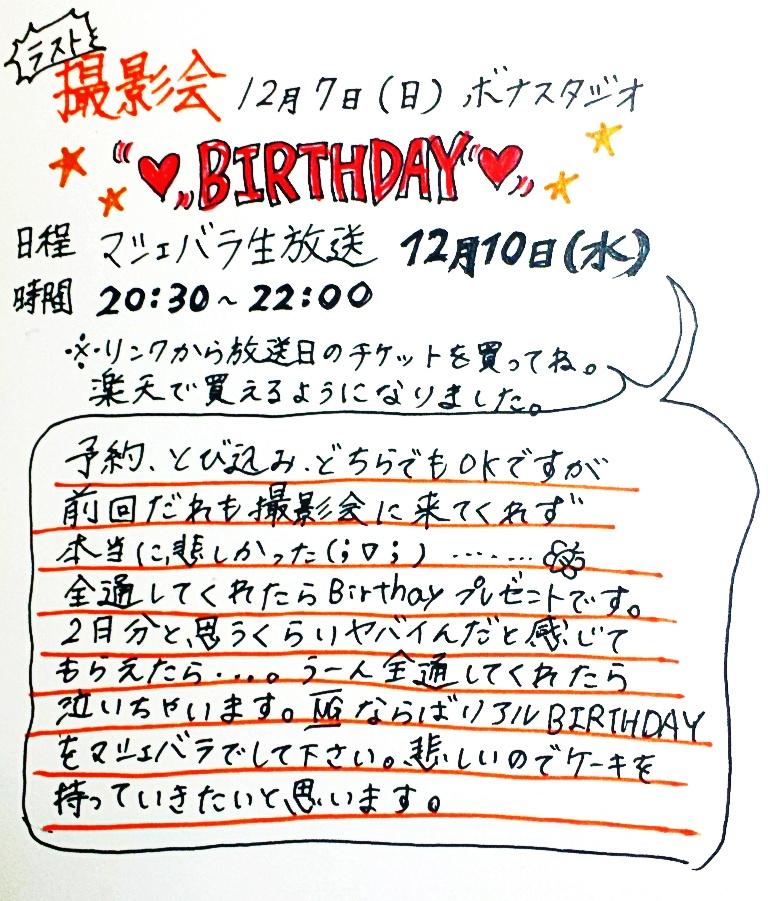 ラストと
撮影会 12月7日(日) ボナスタジオ
"♥„BIRTHDAY"♥„
日程 マシェバラ生放送 12月10日(水)
時間 20:30~22:00
※リンクから放送日のチケットを買ってね。
楽天で買えるようになりました。
予約、とび込み、どちらでもOKですが
前回だれも撮影会に来てくれず
本当に悲しかった(;▽;)………
全通してくれたらBirthayプレゼントです。
2日分と、思うくらいヤバイんだと感じて
もらえたら...。うーん全通してくれたら
泣いちゃいます。NGならばリアルBIRTHDAY
をマシェバラでして下さい。悲しいのでケーキを
持っていきたいと思います。